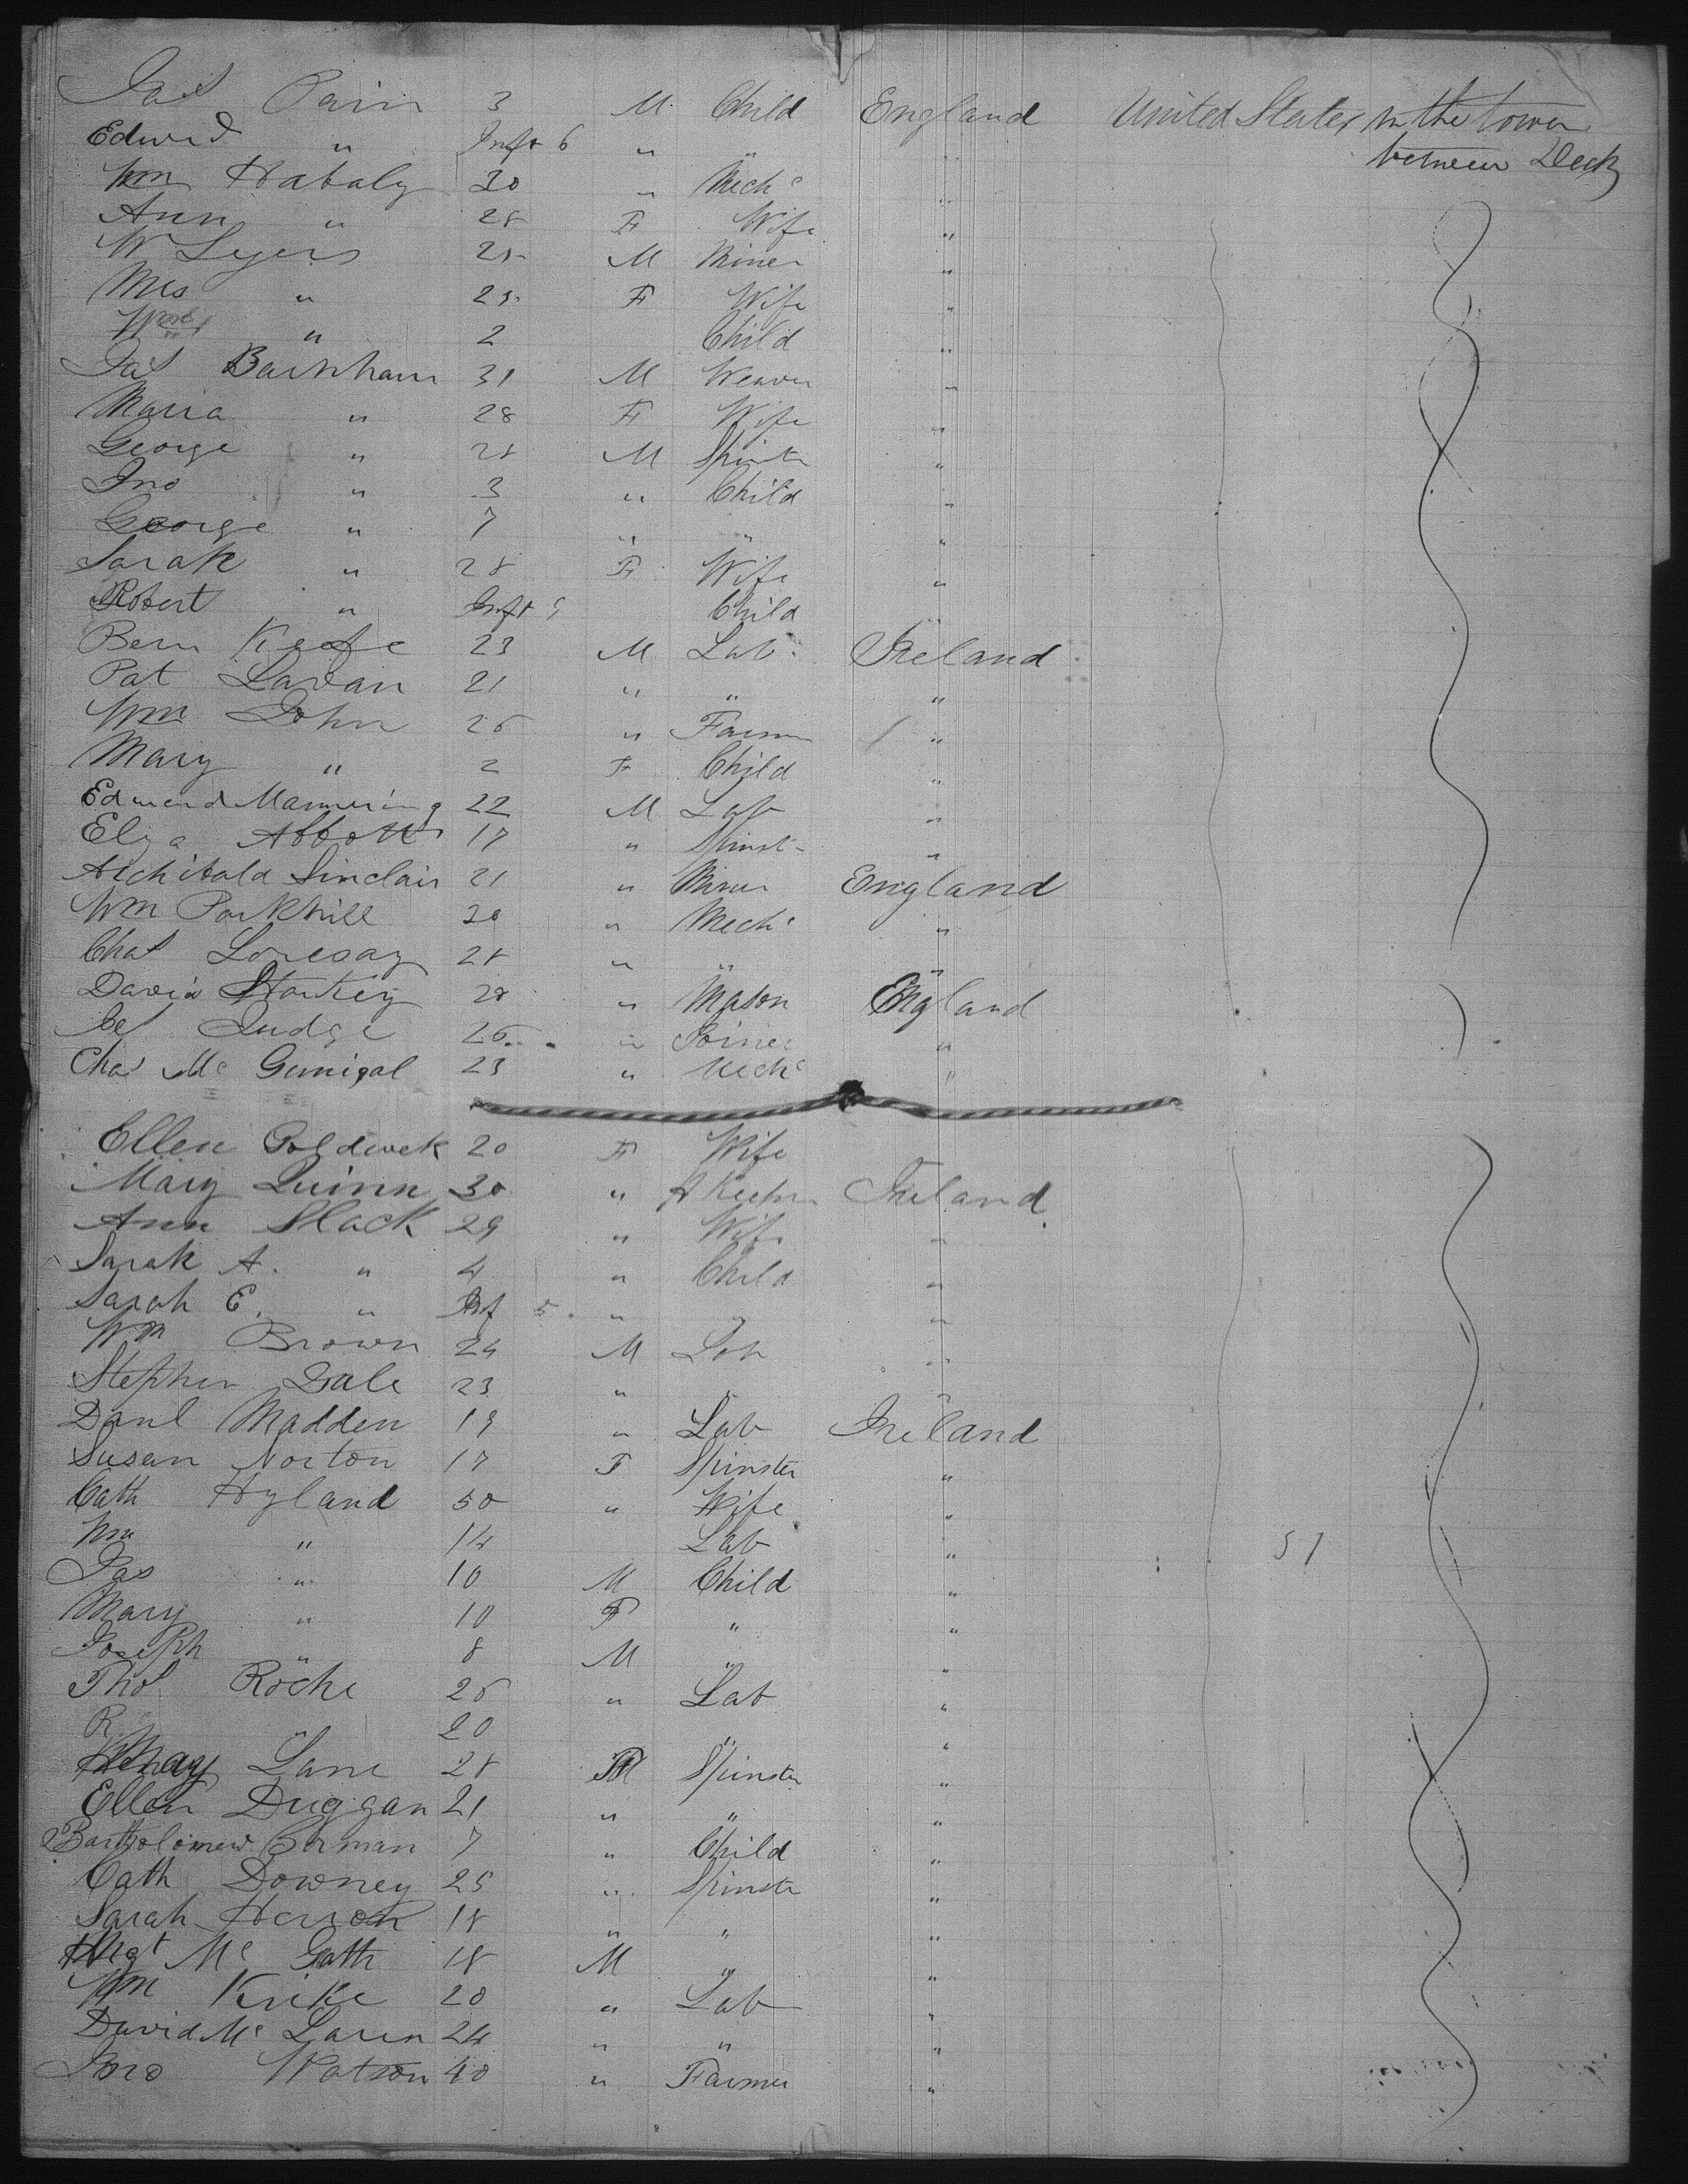 Jas Pain 3 M. Child England United States In the lower
Edwd " Inft 6 " " " between Deck
Wm Habaly 30 " Mechc "
Ann " 28 F Wife "
W Lyers 25 M Miner "
Mrs " 25 F Wife "
" 2 Child "
Jas Barnham 31 M Weaver "
Maria " 28 F Wife "
George " 28 M Spinter "
Jno " 3 " Child "
George " 7 " " "
Sarah " 28 F Wife "
Robert " Inft 9 Child "
Bern Keefe 23 M Lab. Ireland
Pat Lavan 21 " " "
Wm John 26 " Farmr "
Mary " 2 F Child "
Edward Mannering 22 M Lab "
Elza Abbott 17 " Spinst "
Archibald Sinclair 21 " Miner England
Wm Parkhill 20 " Mechc "
Chas 28 " " "
David 28 " Mason England
Judge 26 " Joiner "
Chas Mc Gunigal 23 " Mechc "
Ellen Goldwek 20 F Wife
Mary Quinn 30 " Ireland
Ann Slack 29 " Wife "
Sarah A. " 4 " Child "
Sarah E. " Inf 5 " " "
Wm Brown 24 M Lab "
Stephen Dale 23 " " "
Danl Madden 19 " Lab Ireland
Susan Norton 17 F Spinster "
Cath Hyland 50 " Wife "
Wm " 14 Lab " 51
Jas " 10 M Child "
Mary " 10 F " "
Joseph " 8 M " "
Thos Roche 26 " Lab "
R " 20 " "
May Lane 28 Spinster "
Ellen Duggan 21 " " "
Bartholomew Gorman 7 " Child "
Cath Downey 25 " Spinster "
Sarah Herron 18 " " "
Mgt Mc Gath 18 M " "
Wm Krike 20 " Lab "
David Mc Laren 24 " " "
Jno Watson 40 " Farmer "